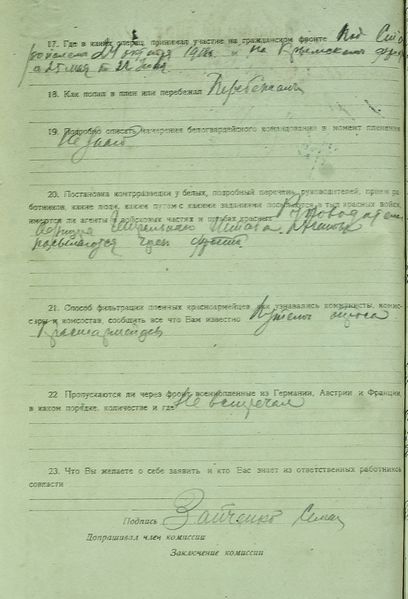 17. Где в каких операц. принимал участие на гражданском фронте Под
24 октября 1918 и на Крымском
с 25 мая по 22 июня
18. Как попал в плен или перебежал Перебежал
19. Подробно описать намерения белогвардейского командования в момент пленения
Не знаю
20. Постановка контрразведки у белых, подробный перечень руководителей, прием ра-
ботников, какие люди, каким путем с какими заданиями посылаются в тыл красных войск,
имеются ли агенты в войсковых частях и штабах красных
Генерального Штаба.
рассылаются через фронт
21. Способ фильтрации пленных красноармейцев, как узнавались коммунисты, комис-
сары и комсостав, сообщить все что Вам известно Путем опроса
Красноармейцев
22 Пропускаются ли через фронт военнопленные из Германии, Австрии и Франции,
в каком порядке, количестве и где Не встречал
23. Что Вы желаете о себе заявить и кто Вас знает из ответственных работников
совласти
Подпись Зайченко
Допрашивал член комиссии
Заключение комиссии